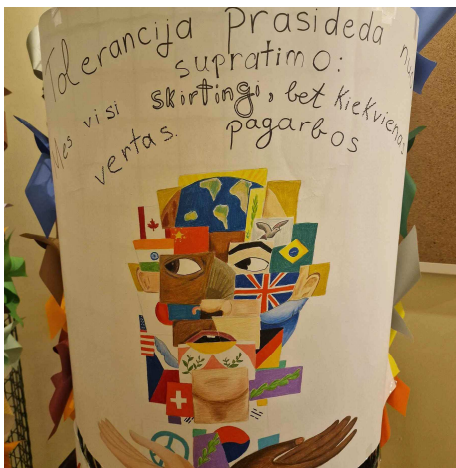 Tolerancija Prasideda nuo
supratimo:
Mes visi skirtingi, bet kiekvienas
vertas pagarbos